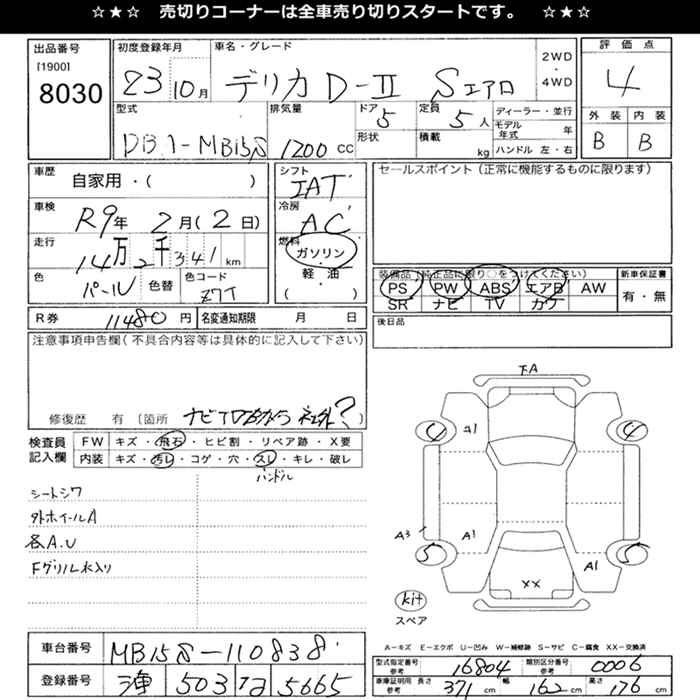 ☆★☆ 売切りコーナーは全車売り切りスタートです。 ☆★☆
出品番号 初度登録年月 車名・グレード 2WD・4WD 評価点
[1900]
8030 23 10月 デリカD-Ⅱ Sエアロ 4
型式 排気量 ドア 5 定員 5人 ディーラー・並行 外装 内装
DBA-MB15S 1200 CC 形状 積載 kg モデル年式 年 B B
ハンドル 左・右
車歴 自家用・( ) シフト IAT セールスポイント(正常に機能するものに限ります)
車検 R9年 2月(2日) 冷房 AC
走行 14万2千341km 燃料 ガソリン・軽油
色 パール 色替 色コード Z7T ( ) 装備品(純正品に限り○をつけてください) 新車保証書
PS PW ABS エアB AW 有・無
SR ナビ TV カワ
R券 11480円 名変通知期限 月 日 後日品
注意事項申告欄(不具合内容等は具体的に記入して下さい)
修復歴 有 [箇所 ナビTVBカメラ 社外?]
検査員記入欄 FW キズ・飛石・ヒビ割・リペア跡・X要
内装 キズ・汚レ・コゲ・穴・スレ・キレ・破レ
ハンドル
シートシワ
外ホイールA
各A.U
Fグリル水入り
下A
4 4
A3 A1 A1
5 5
XX
kit
スペア
A―キズ E―エクボ U―凹み W―補修跡 S―サビ C―腐食 XX―交換済
車台番号 MB15S-110838 型式指定番号 参考 16804 類別区分番号 参考 0006
登録番号 503 5665 車庫証明用 参考 長さ 371 cm 幅 162 cm 高さ 176 cm